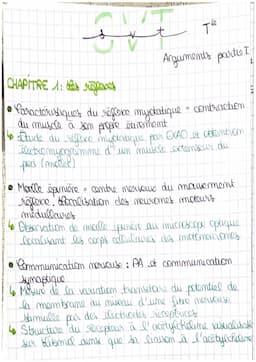 SVT
svt Tle
Arguments partie I
CHAPITRE 1: les réflexes
• Caractéristiques du réflexe myotatique = contraction
du muscle à son propre étirement
↳ Étude du réflexe myotatique par ExAO et obtention
électromyogramme d'un muscle extenseur du
pied (mollet)
• Moelle épinière = centre nerveux du mouvement
réflexe, localisation des neurones moteurs
médullaires
↳ Observation de moelle épinière au microscope optique
localisant les corps cellulaires des motoneurones
• Communication nerveuse: PA et communication
synaptique
↳ Mesure de la variation transitoire du potentiel de
la membrane au niveau d'une fibre nerveuse
stimulée par des électrodes réceptrices
↳ Structure du récepteur à l'acétylcholine visualisable
sur Rastop ainsi que sa liaison à l'acétylcholine